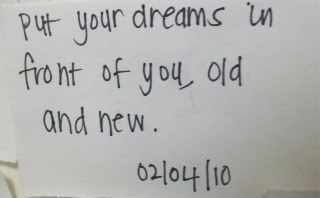 Put your dreams in
front of you, old
and new.
02/04/10